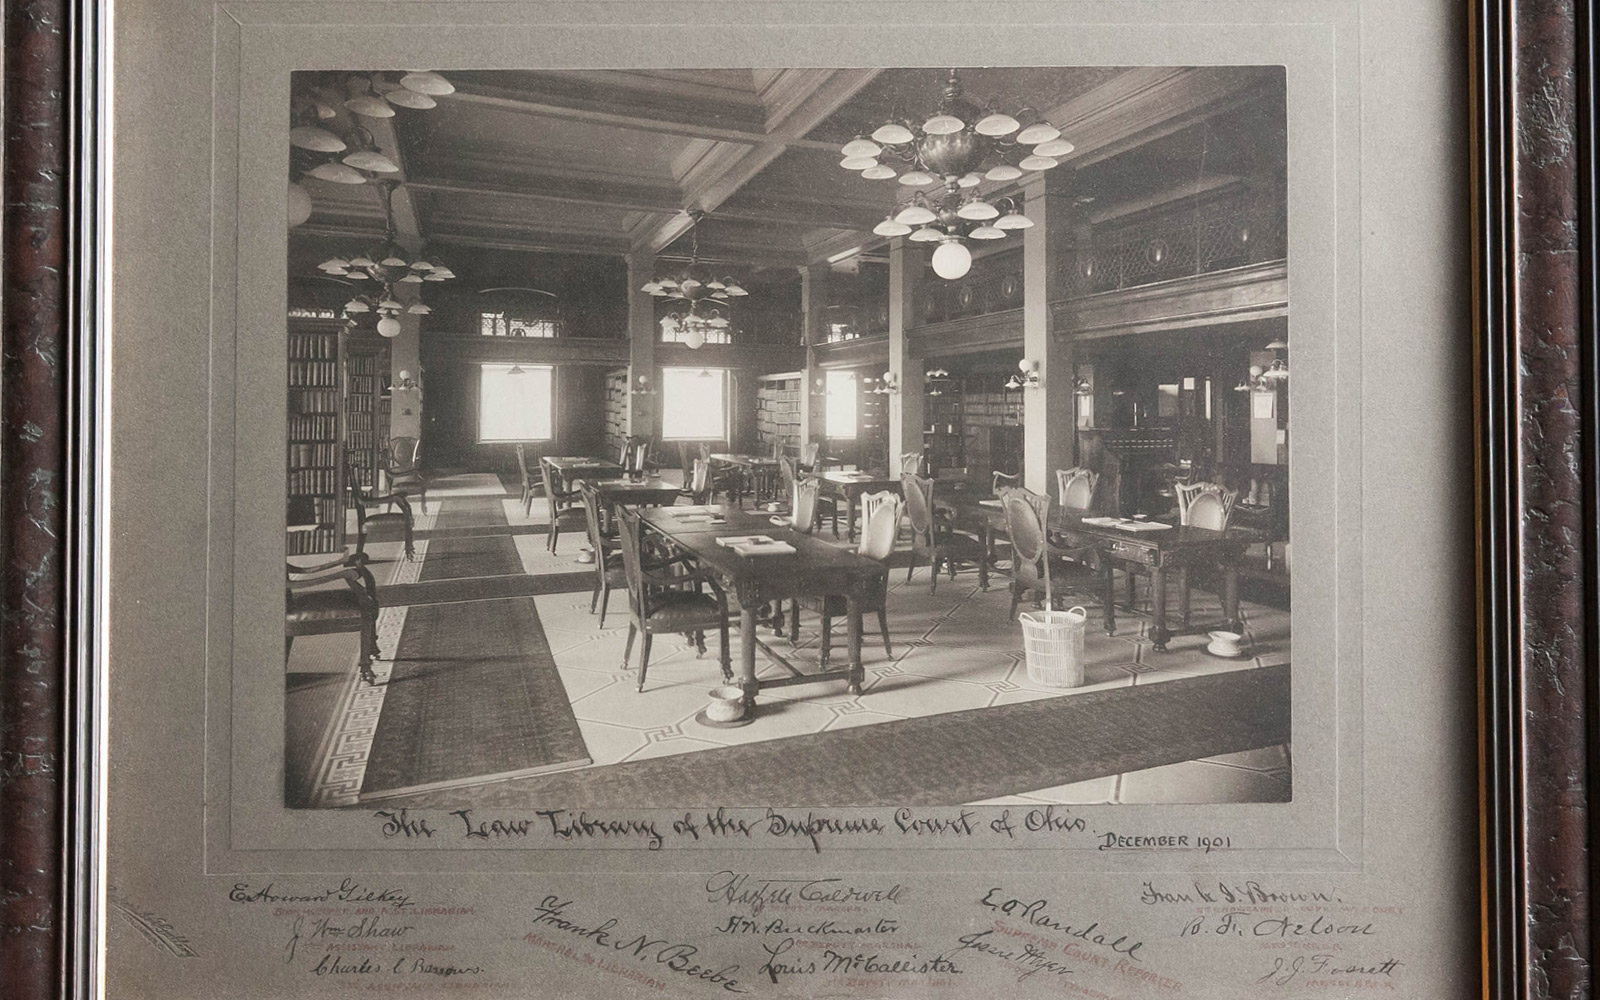 The Law Library of the Supreme Court of Ohio.
DECEMBER 1901
E. Howard Gilkey
BOOKKEEPER AND ASST. LIBRARIAN
J Wm Shaw
ASSISTANT LIBRARIAN
Charles C
ASSISTANT LIBRARIAN
Frank N. Beebe
MARSHAL & LIBRARIAN
Caldwell
H.W. Buckmaster
DEPUTY MARSHAL
Louis McCallister
E.O. Randall
SUPREME COURT REPORTER
Jessie Myer
Frank J. Brown.
B. F. Nelson
J.J. Fossett